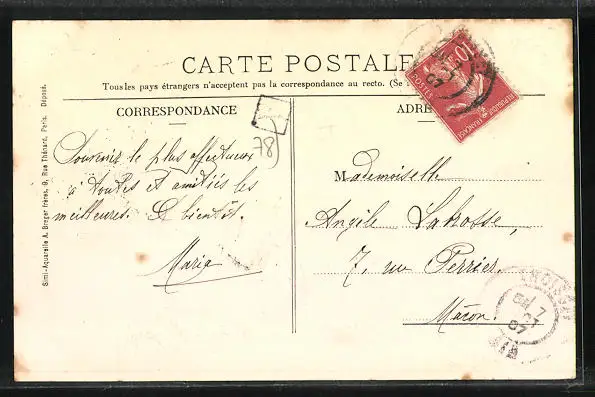 CARTE POSTALE
Tous les pays étrangers n'acceptent pas la correspondance au recto. (Se
CORRESPONDANCE
ADRE
Souvenir le plus affectueux
à toutes et amitiés les
meilleures. A bientôt.
Maria
78
Mademoiselle
Angèle Lahosse,
7, rue Perrier.
Mâcon.
10
POSTES
REPUBLIQUE FRANÇAISE
7
07
Simi-Aquarelle A. Breger frères, 9, Rue Thénard, Paris. Déposé.